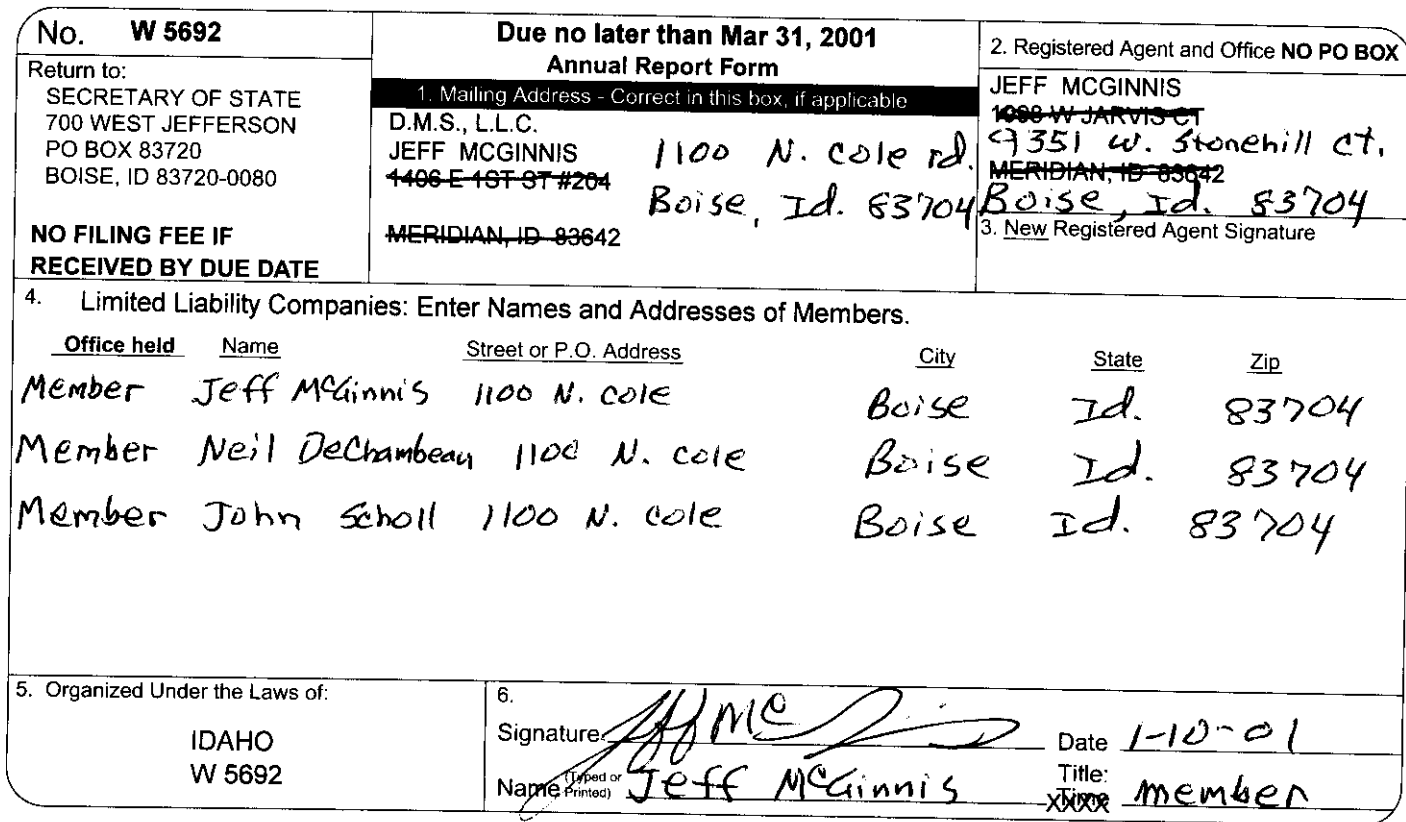 No. W 5692
Return to:
SECRETARY OF STATE
700 WEST JEFFERSON
PO BOX 83720
BOISE, ID 83720-0080
NO FILING FEE IF
RECEIVED BY DUE DATE
Due no later than Mar 31, 2001
Annual Report Form
1. Mailing Address - Correct in this box, if applicable
D.M.S., L.L.C.
JEFF MCGINNIS
1406 E 1ST ST #204
MERIDIAN, ID 83642
1100 N. Cole rd.
Boise, Id. 83704
2. Registered Agent and Office NO PO BOX
JEFF MCGINNIS
1098 W JARVIS CT
9351 W. Stonehill Ct.
MERIDIAN, ID 83642
Boise, Id. 83704
3. New Registered Agent Signature
4. Limited Liability Companies: Enter Names and Addresses of Members.
Office held Name Street or P.O. Address City State Zip
Member Jeff McGinnis 1100 N. Cole Boise Id. 83704
Member Neil DeChambeau 1100 N. Cole Boise Id. 83704
Member John Scholl 1100 N. Cole Boise Id. 83704
5. Organized Under the Laws of:
IDAHO
W 5692
6.
Signature Jeff Mc Date 1-10-01
Name (Typed or Printed) Jeff McGinnis Title: member